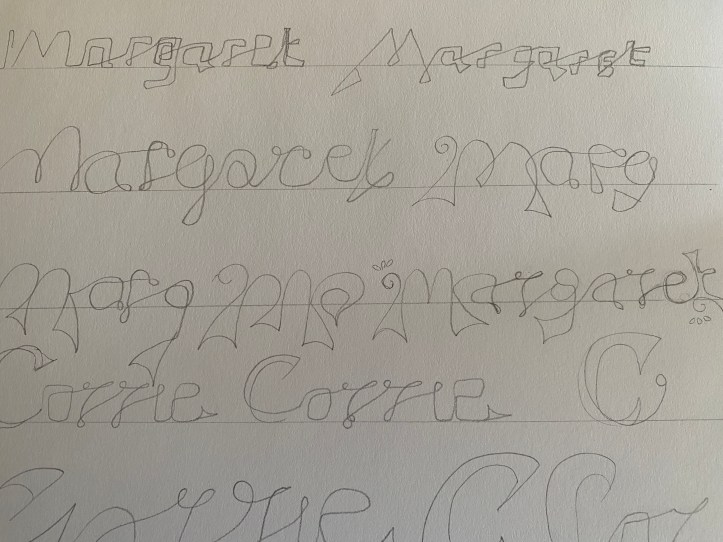 Margaret Margaret
Margaret Marg
Marg Ma Margaret
Corrie Corrie C
Corrie C Cor